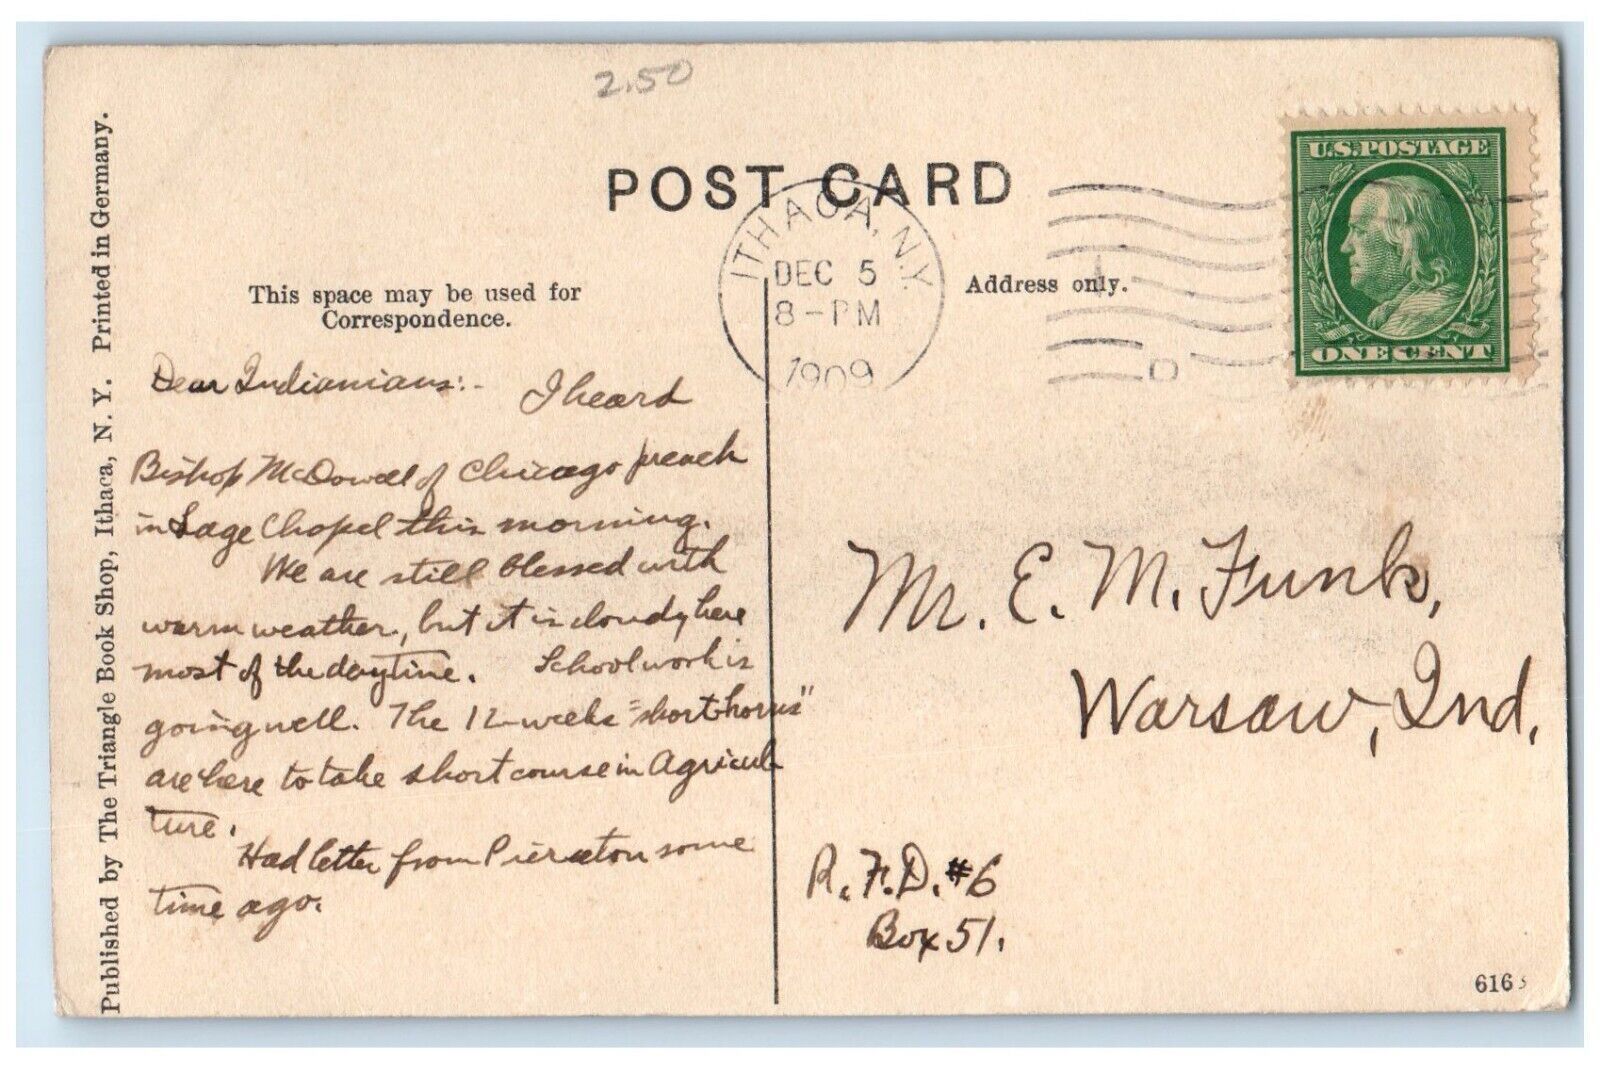 2.50
POST CARD
U.S. POSTAGE
ONE CENT
ITHACA, N.Y.
DEC 5
8-PM
1909
D
This space may be used for
Correspondence.
Address only.
Dear Indianians:- I heard
Bishop McDowell of Chicago preach
in Sage Chapel this morning.
We are still blessed with
warm weather, but it is cloudy here
most of the daytime. School work is
going well. The 12-weeks "short-horns"
are here to take short course in Agricul
ture.
Had letter from Pierceton some
time ago.
Mr. E. M. Funk,
Warsaw, Ind.
R. F. D. #6
Box 51.
Published by The Triangle Book Shop, Ithaca, N. Y. Printed in Germany.
616